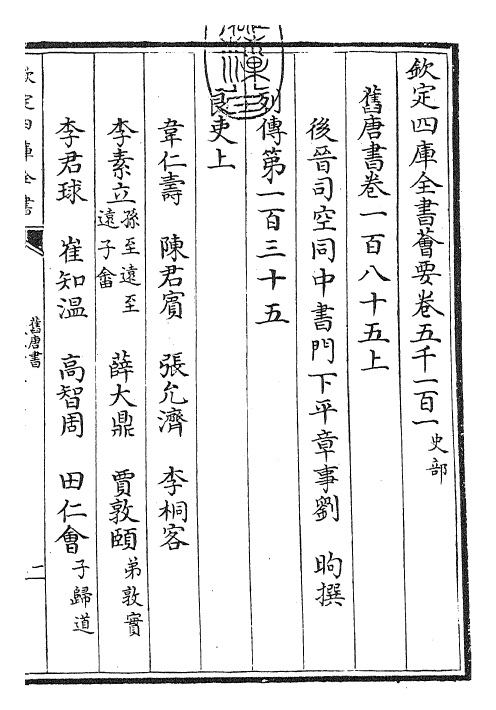 欽定四庫全書薈要卷五千一百一 史部
舊唐書卷一百八十五上
後晉司空同中書門下平章事劉 昫撰
列傳第一百三十五
良吏上
韋仁壽 陳君賓 張允濟 李桐客
李素立 孫至遠 至遠子畬 薛大鼎 賈敦頤 弟敦實
李君球 崔知温 高智周 田仁會 子歸道
欽定四庫全書
舊唐書